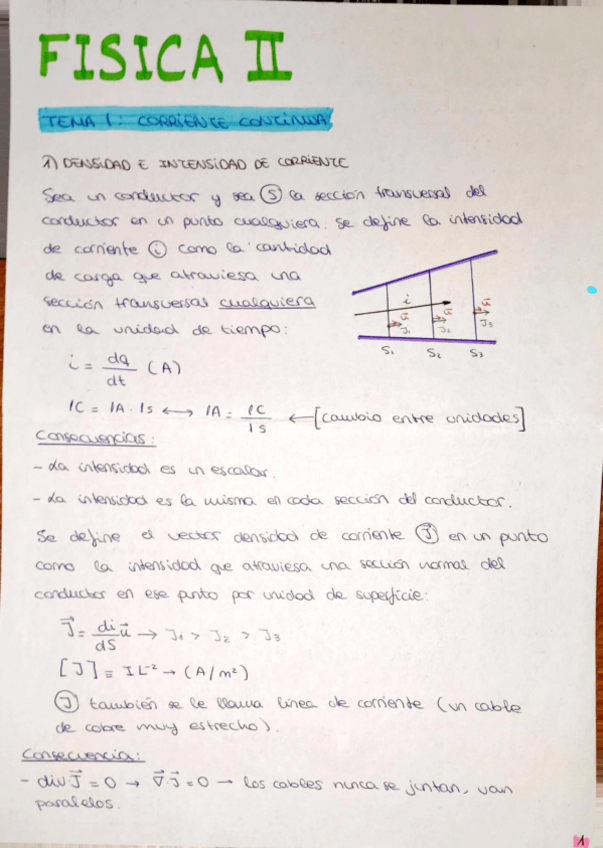 FISICA II
TEMA 1: CORRIENTE CONTINUA
1) DENSIDAD E INTENSIDAD DE CORRIENTE
Sea un conductor y sea Ⓢ la sección transversal del
conductor en un punto cualquiera. Se define la intensidad
de corriente ⓘ como la cantidad
de carga que atraviesa una
sección transversal cualquiera
en la unidad de tiempo:
i
u⃗ J₁ u⃗ J₂ u⃗ J₃
S₁ S₂ S₃
i = dq/dt (A)
1C = 1A · 1s ⟷ 1A = 1C/1s ← [cambio entre unidades]
Consecuencias:
- La intensidad es un escalar.
- La intensidad es la misma en cada sección del conductor.
Se define el vector densidad de corriente (J⃗) en un punto
como la intensidad que atraviesa una sección normal del
conductor en ese punto por unidad de superficie:
J⃗ = di/dS u⃗ → J₁ > J₂ > J₃
[J] ≡ I L⁻² → (A/m²)
(J) también se le llama línea de corriente (un cable
de cobre muy estrecho).
Consecuencia:
- div J⃗ = 0 → ∇⃗·J⃗ = 0 → los cables nunca se juntan, van
paralelos.
1